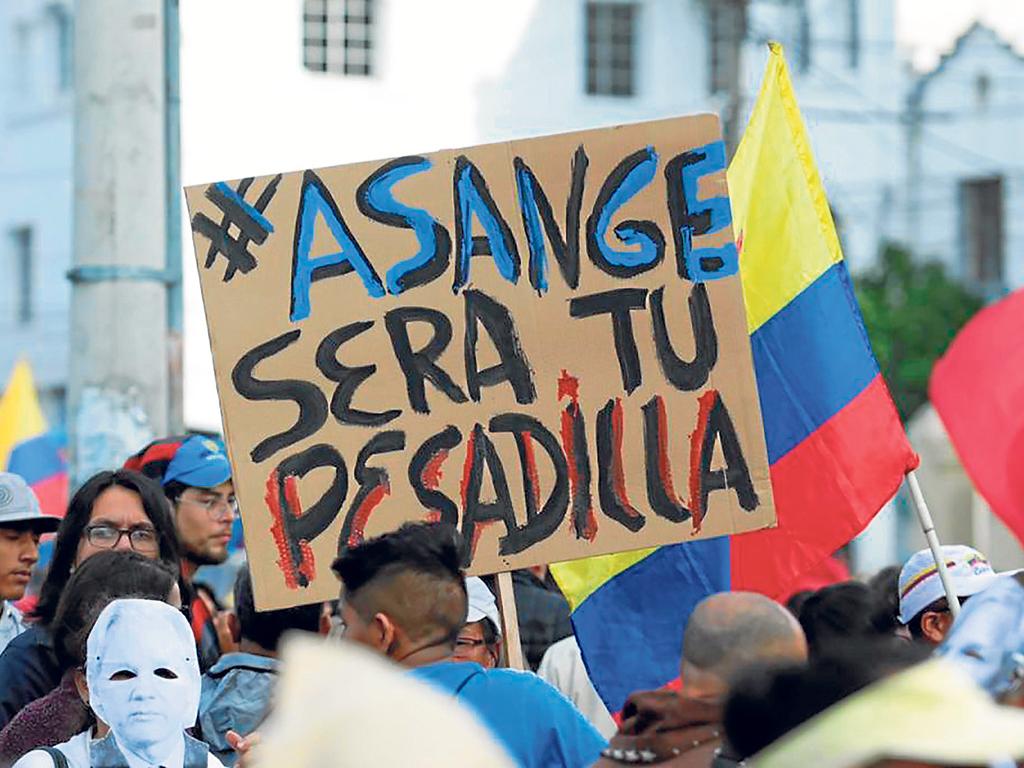 #ASANGE
SERA TU
PESADILLA